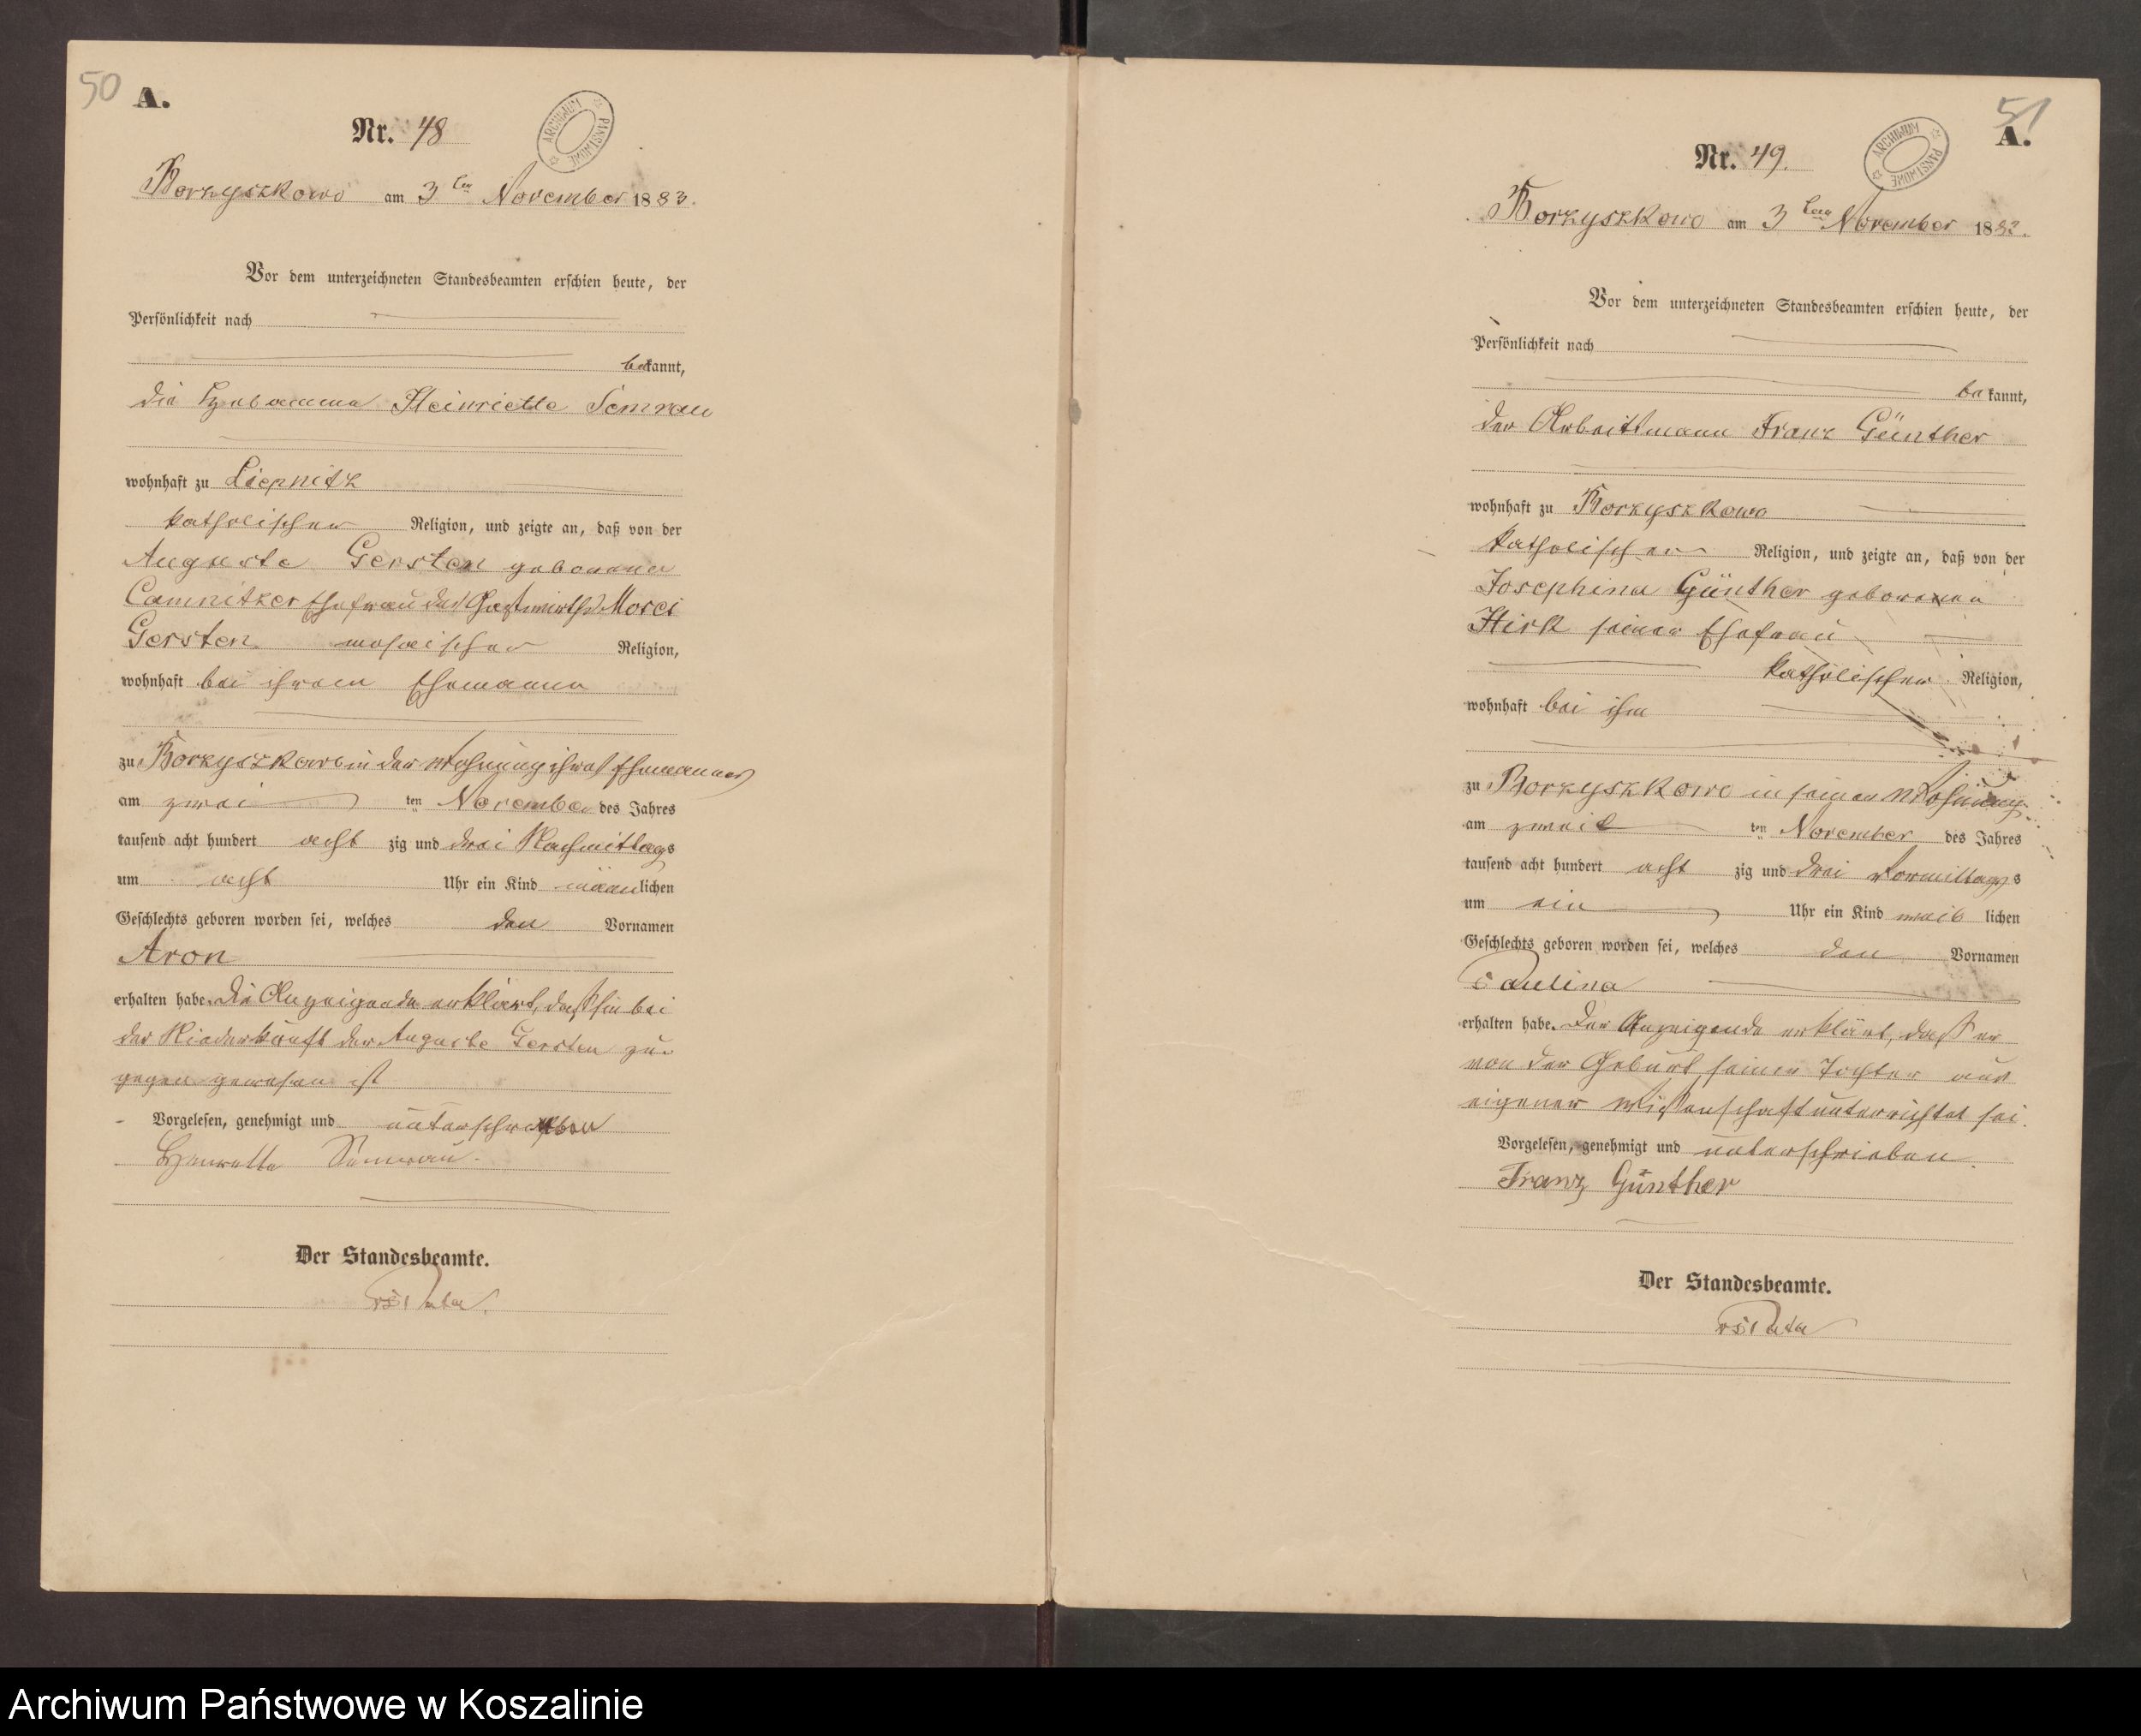 50
A.
Nr. 48
ARCHIWUM PAŃSTWOWE
Borzyszkowo am 3ten November 1883.
Vor dem unterzeichneten Standesbeamten erschien heute, der
Persönlichkeit nach
bekannt,
die Hebamme Heinriette Semrau
wohnhaft zu Liepnitz
katholischer Religion, und zeigte an, daß von der
Auguste Gersten geborenen
Camnitzer Ehefrau des Gastwirths Morei
Gersten mosaischer Religion,
wohnhaft bei ihrem Ehemanne
zu Borzyszkowo in der Wohnung ihres Ehemannes
am zwei ten November des Jahres
tausend acht hundert acht zig und drei Nachmittags
um acht Uhr ein Kind männlichen
Geschlechts geboren worden sei, welches den Vornamen
Aron
erhalten habe. Die Anzeigende erklärt, daß sie bei
der Niederkunft der Auguste Gersten zu
gegen gewesen ist
Vorgelesen, genehmigt und unterschrieben
Henrette Semrau.
Der Standesbeamte.
51
A.
Nr. 49.
ARCHIWUM PAŃSTWOWE
Borzyszkowo am 3ten November 1883.
Vor dem unterzeichneten Standesbeamten erschien heute, der
Persönlichkeit nach
bekannt,
der Arbeitsmann Franz Günther
wohnhaft zu Borzyszkowo
katholischer Religion, und zeigte an, daß von der
Josephina Günther geborenen
Hirk seiner Ehefrau
katholischer Religion,
wohnhaft bei ihm
zu Borzyszkowo in seiner Wohnung
am zwei ten November des Jahres
tausend acht hundert acht zig und drei Vormittags
um ein Uhr ein Kind weib lichen
Geschlechts geboren worden sei, welches den Vornamen
Paulina
erhalten habe. Der Anzeigende erklärt, daß er
von der Geburt seiner Tochter aus
eigener Wissenschaft unterrichtet sei.
Vorgelesen, genehmigt und unterschrieben.
Franz Günther
Der Standesbeamte.
Archiwum Państwowe w Koszalinie